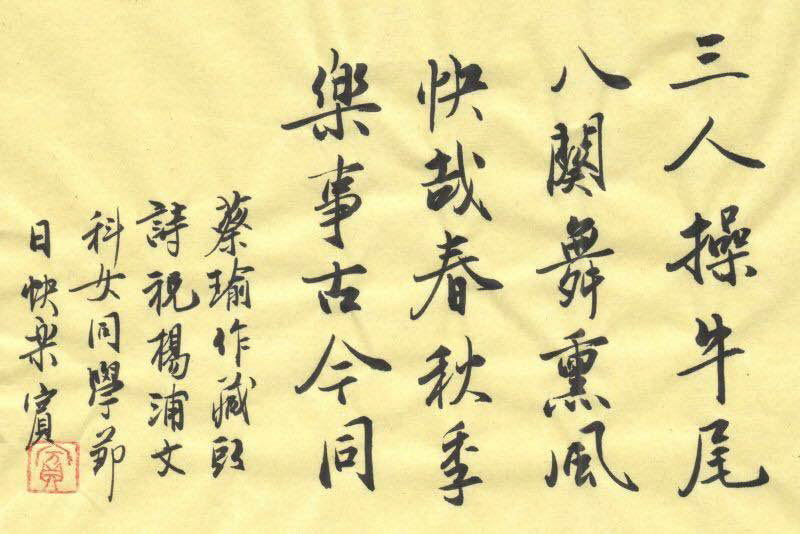 三人操牛尾
八闋舞熏風
快哉春秋季
樂事古今同
蔡瑜作藏頭
詩祝楊浦文
科女同學節
日快樂賓
賓